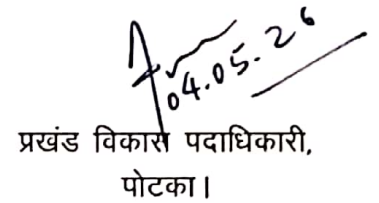 04.05.26
प्रखंड विकास पदाधिकारी,
पोटका।